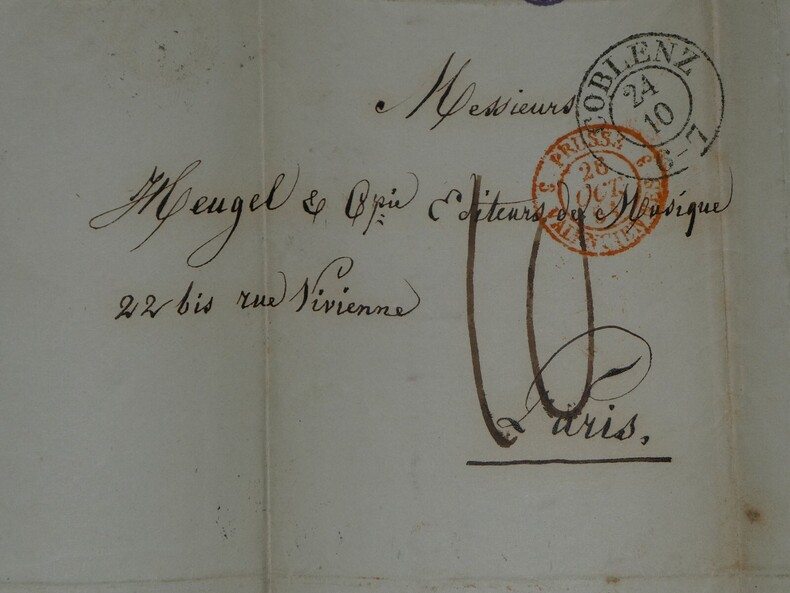 Messieurs
COBLENZ
24
10
6-7
PRUSSE
26
OCT
Meugel & Cpie Editeurs de Musique
22 bis rue Vivienne
10
Paris.